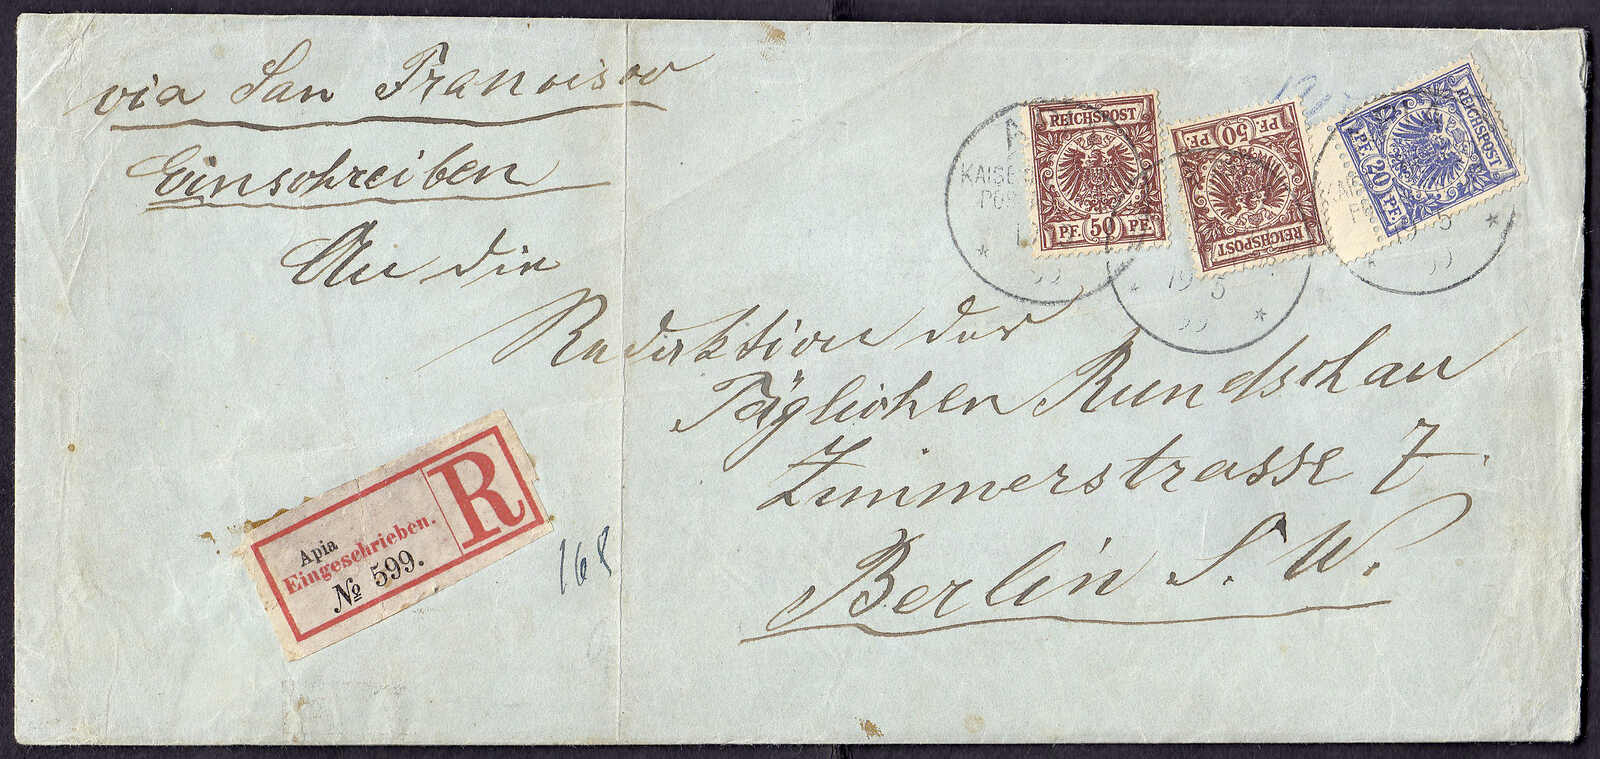 via San Francisco
Einschreiben
An die
Redaktion der
Täglichen Rundschau
Zimmerstrasse 7.
Berlin S. W.
REICHSPOST
PF. 50 PF.
50
PF. PF.
REICHSPOST
REICHSPOST
PF. 20 PF.
KAISE
19 5
99
19 5
Apia
Eingeschrieben.
№ 599.
R
168